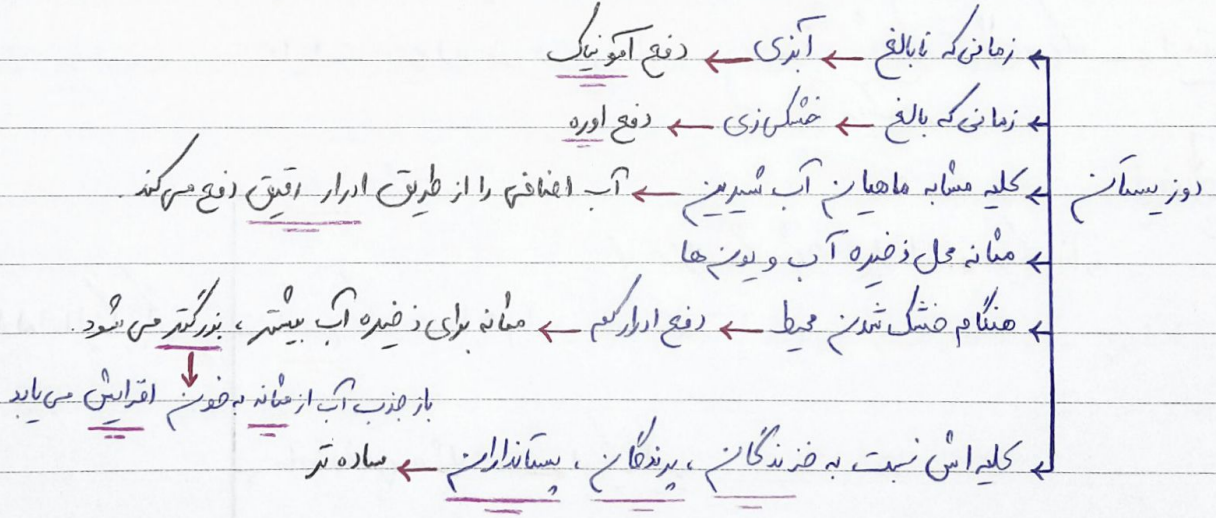 زمانی که نابالغ ← آبزی ← دفع آمونیاک
زمانی که بالغ ← خشکی زی ← دفع اوره
دوزیستان ← کلیه مشابه ماهیان آب شیرین ← آب اضافی را از طریق ادرار رقیق دفع می‌کند.
مثانه محل ذخیره آب و یون ها
هنگام خشک شدن محیط ← دفع ادرار کم ← مثانه برای ذخیره آب بیشتر، بزرگتر می شود.
باز جذب آب از مثانه به خون افزایش می یابد
کلیه اش نسبت به خزندگان، پرندگان، پستانداران ← ساده تر